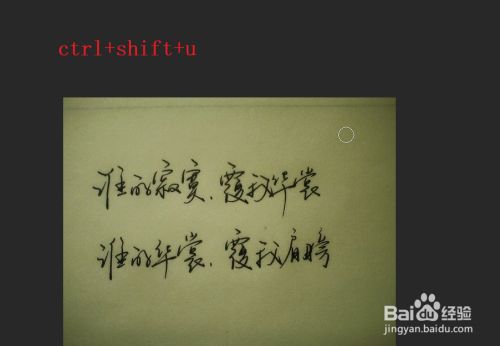 ctrl+shift+u
谁的寂寞，覆我华裳
谁的华裳，覆我肩膀
Baidu 经验
jingyan.baidu.com